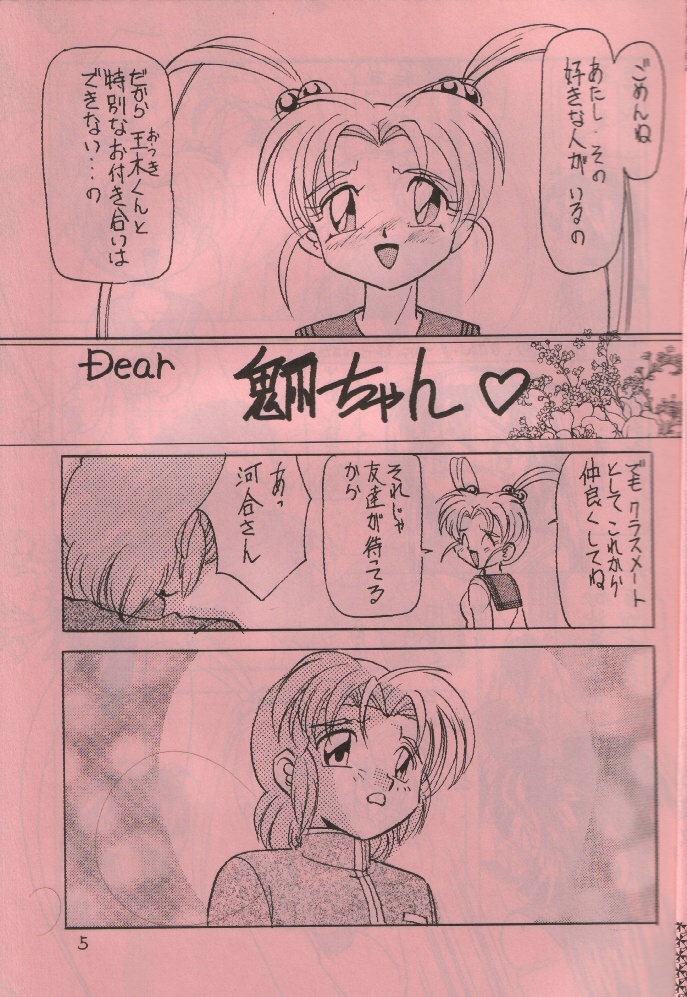 ごめんね
あたし・その
好きな人が いるの
だから 王木くんと
おうき
特別なお付き合いは
できない・・・の
Dear
ちゃん♡
でも クラスメート
として これから
仲良くしてね
それじゃ
友達が待ってる
から
あっ
河合さん
5